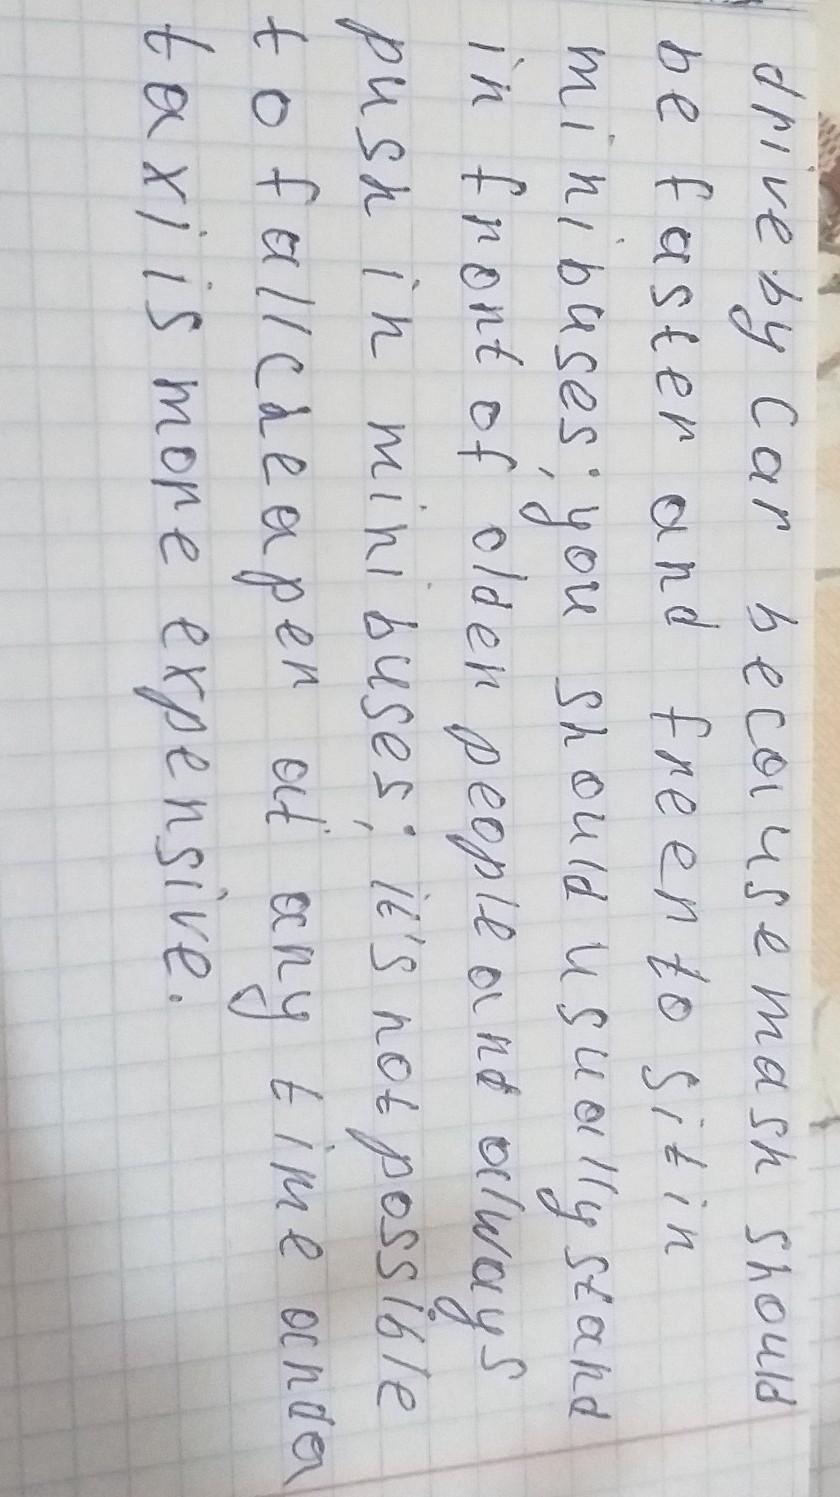 drive by car because mash should
be faster and freer to sit in
minibuses; you should usually stand
in front of older people and always
push in minibuses; it's not possible
to fall cheaper at any time and a
taxi is more expensive.